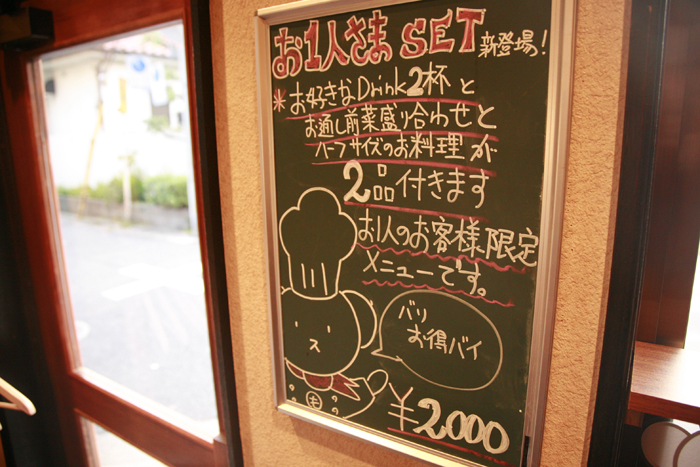 お1人さま SET 新登場!
*お好きなDrink2杯と
お通し前菜盛り合わせと
ハーフサイズのお料理が
2品付きます
お1人のお客様限定
メニューです。
バリ
お得バイ
¥2,000